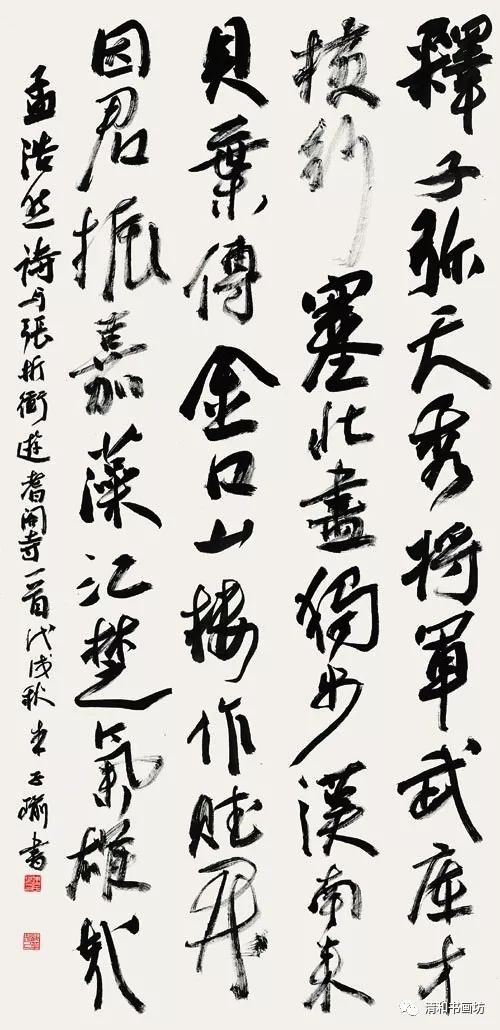 釋子弥天秀將軍武庫才
橫行塞北盡獨步漢南来
貝葉傳金口山樓作賦開
因君振嘉藻江楚氣雄哉
孟浩然詩与張折衝遊耆闍寺一首戊戌秋書
清和书画坊